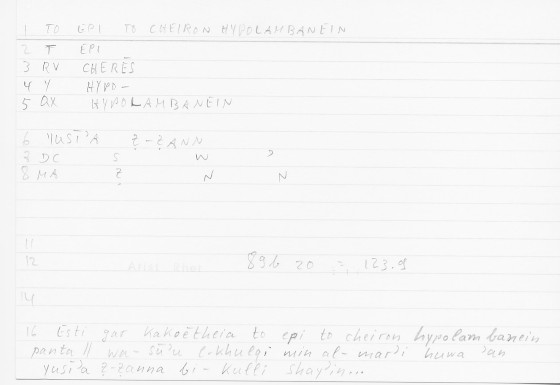 1 TO EPI TO CHEIRON HYPOLAMBANEIN
2 T EPI
3 RV CHERĒS
4 Y HYPO-
5 QX HYPOLAMBANEIN
6 YUSĪ'A Ẓ-ẒANN
7 DC S W
8 MA Ẓ N N
11
12 89b 20 = 123.9
14
16 Esti gar kakoētheia to epi to cheiron hypolambanein
panta // wa-sū'u l-khulqi min al-mar'i huwa 'an
yusī'a ẓ-ẓanna bi-kulli shay'in...